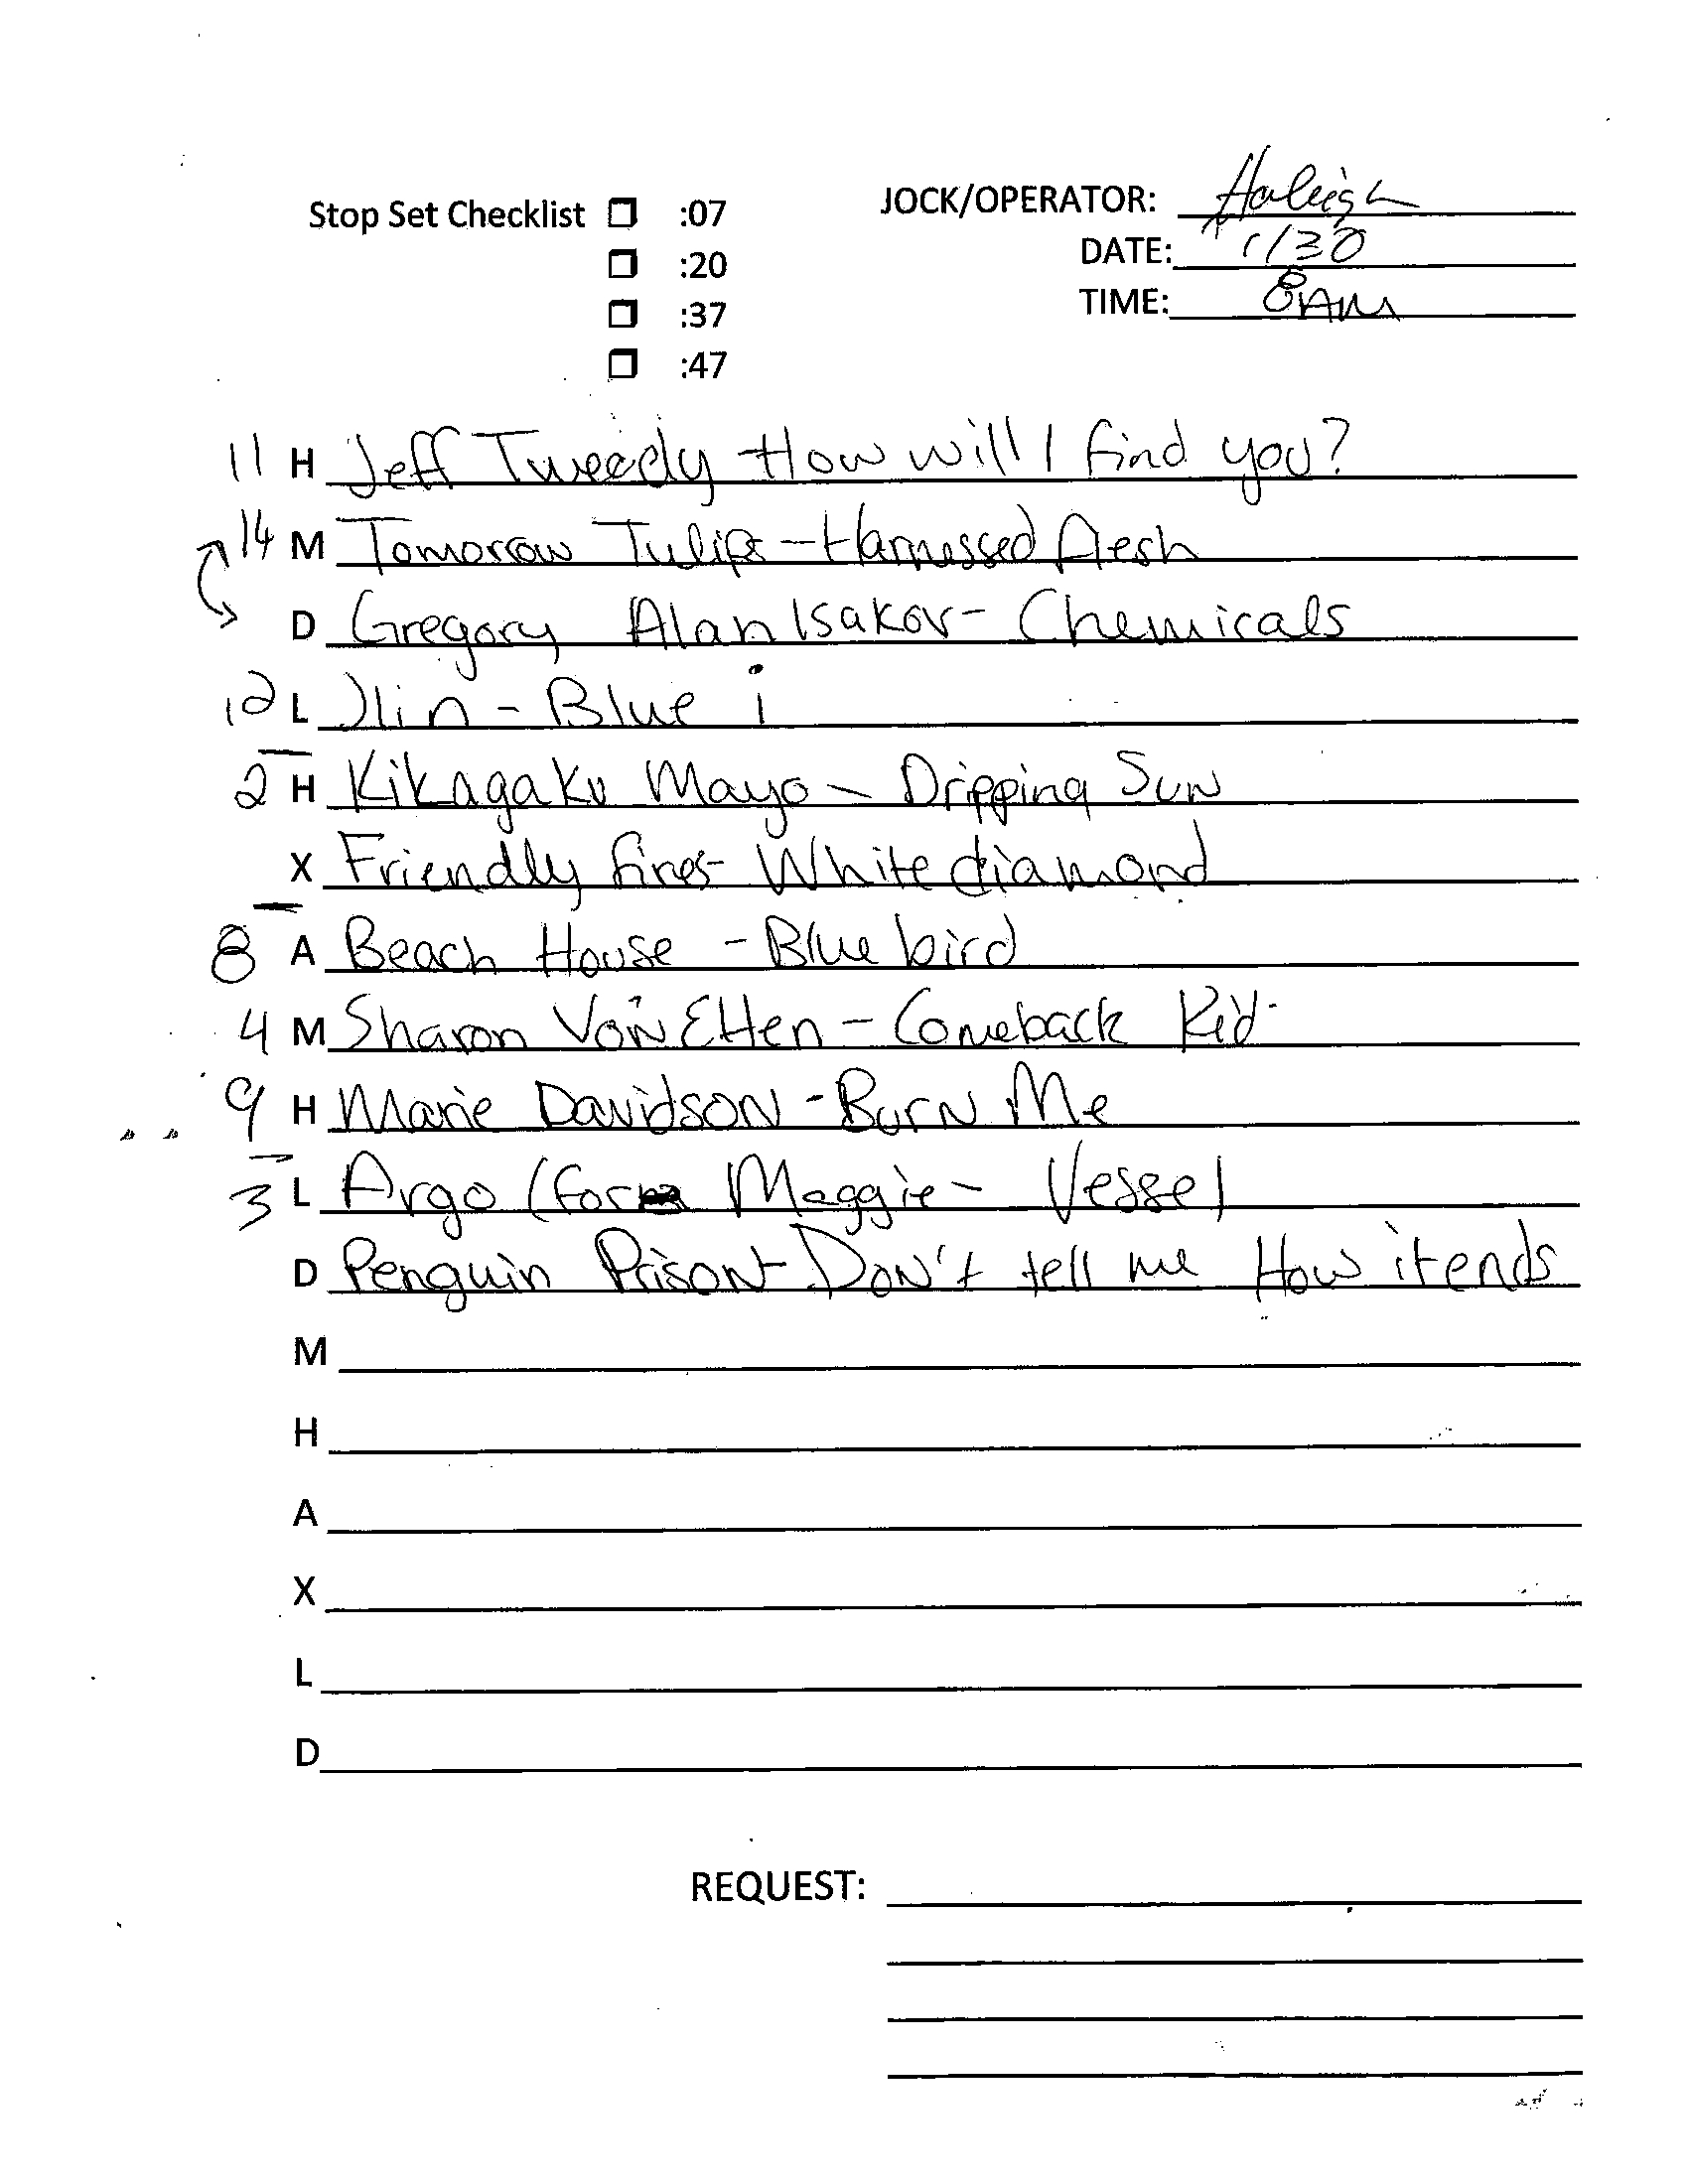 Stop Set Checklist ☐ :07
JOCK/OPERATOR: Haleigh
☐ :20
DATE: 1/30
☐ :37
TIME: 8AM
☐ :47
11 H Jeff Tweedy How will I find you?
14 M Tomorrow Tulips - Harnessed Flesh
D Gregory Alan Isakov - Chemicals
12 L Jlin - Blue i
2 H Kikagaku Mayo - Dripping Sun
X Friendly fires - White diamond
8 A Beach House - Blue bird
4 M Sharon Van Etten - Comeback Kid
9 H Marie Davidson - Burn Me
3 L Argo (for Maggie - Vessel
D Penguin Prison - Don't tell me How it ends
M
H
A
X
L
D
REQUEST: